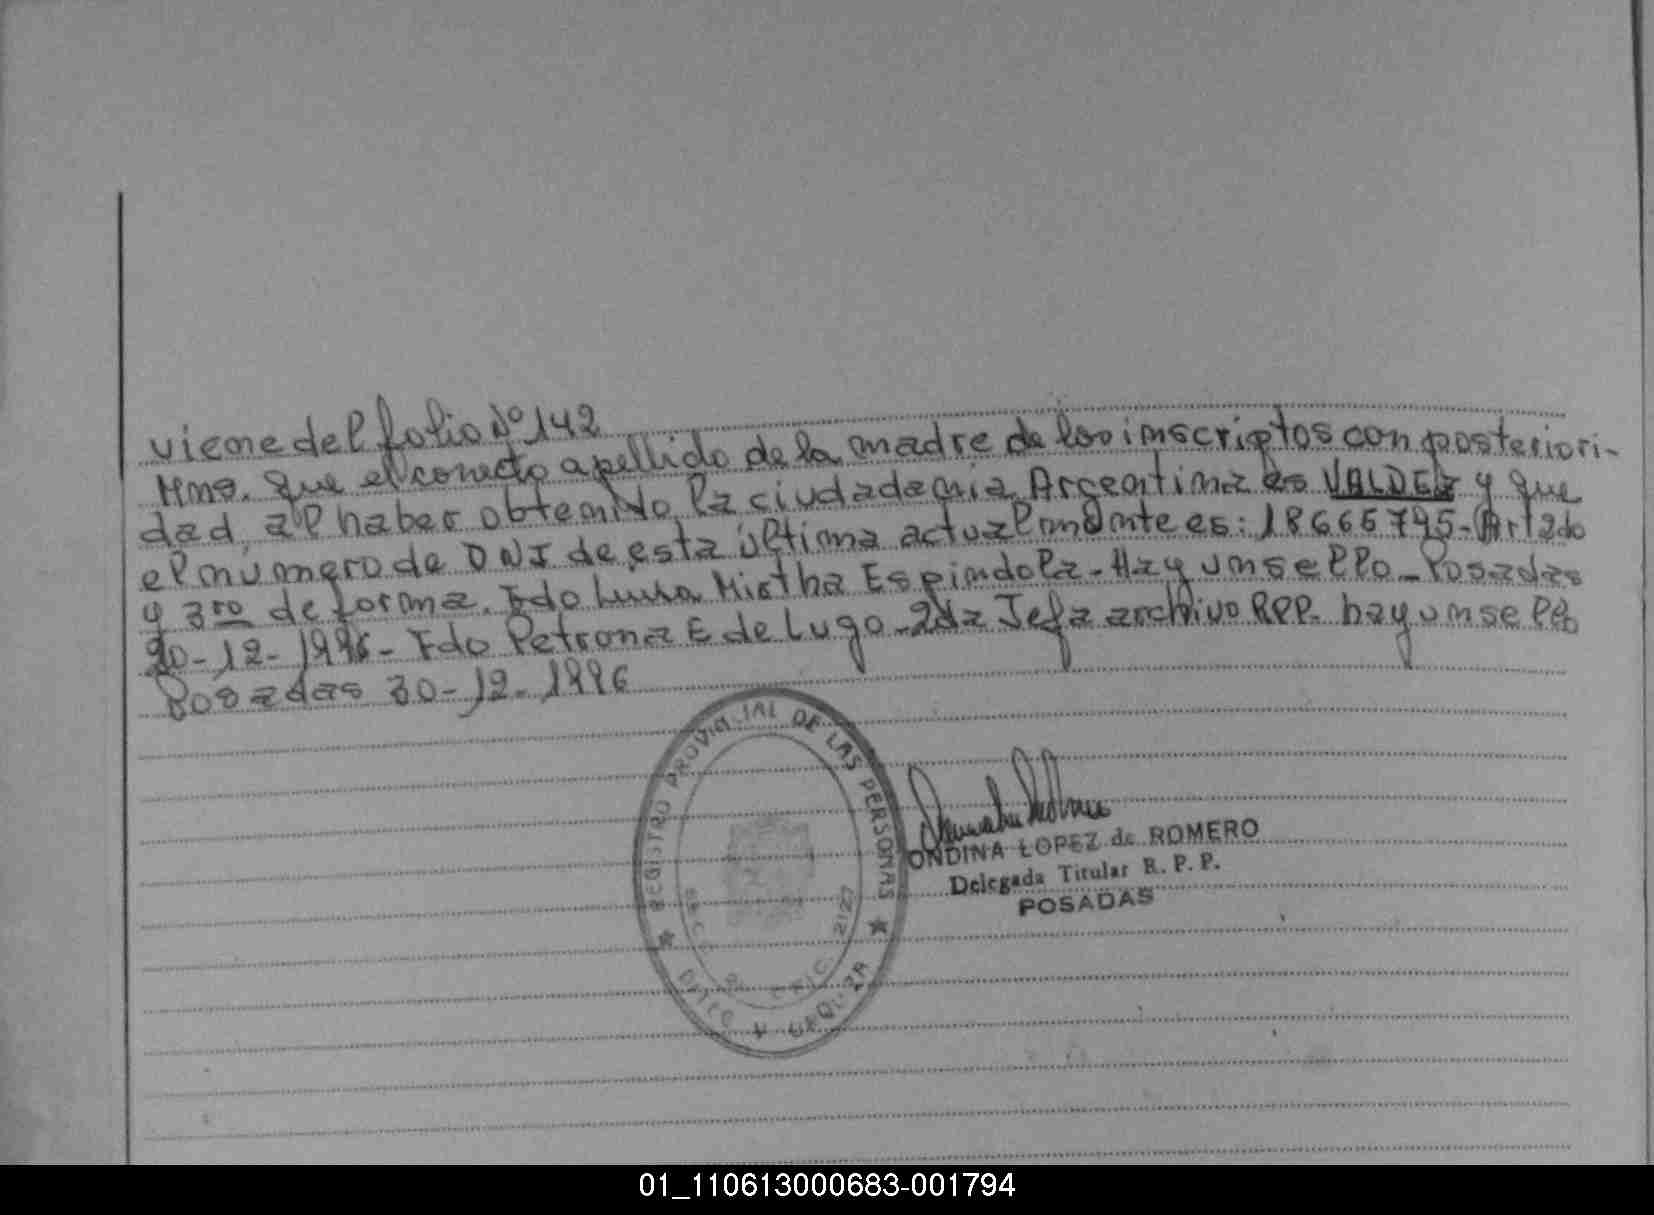 viene del folio Nº 142
Mns. que el correcto apellido de la madre de los inscriptos con posteriori-
dad, al haber obtenido la ciudadania Argentina es VALDEZ y que
el numero de DNI de esta última actualmente es: 18665795- Art 2do
y 3ro de forma. Fdo Mirtha Espindola- Hay un sello- Posadas
20-12-1996- Fdo Petrona E de Lugo- 2da Jefa archivo RPP- hay un sello
Posadas 30-12-1996
REGISTRO PROVINCIAL DE LAS PERSONAS
ONDINA LOPEZ de ROMERO
Delegada Titular R. P. P.
POSADAS
01_110613000683-001794